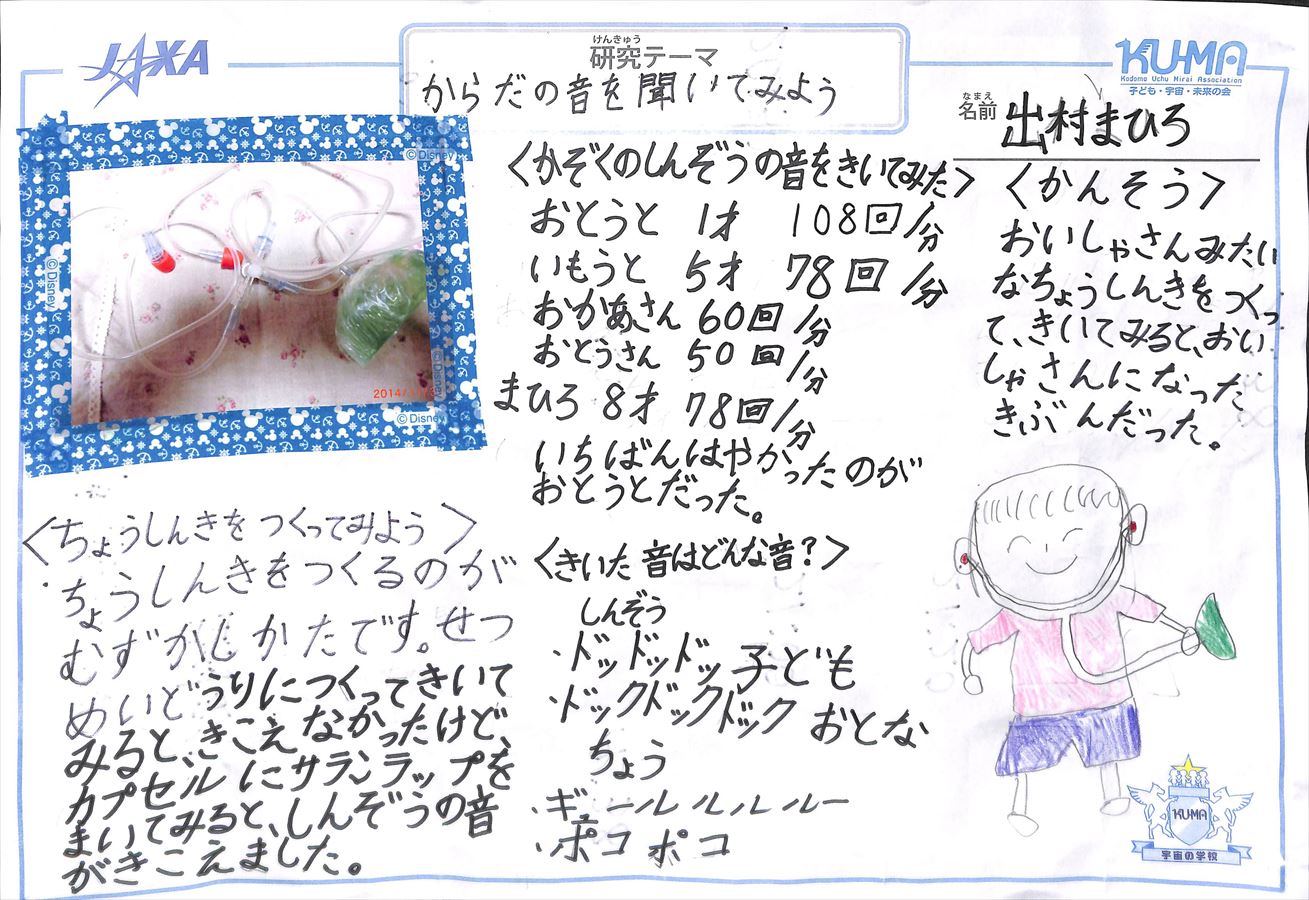 JAXA
けんきゅう
研究テーマ
からだの音を聞いてみよう
KU-MA
Kodomo Uchu Mirai Association
子ども・宇宙・未来の会
なまえ
名前 出村まひろ
© Disney
© Disney
© Disney
© Disney
2014/11/
<ちょうしんきを つくってみよう>
・ちょうしんきをつくるのが
むずかしかたです。せつ
めいどうりにつくってきいて
みると、きこえなかったけど、
カプセルにサランラップを
まいてみると、しんぞうの音
がきこえました。
<かぞくのしんぞうの音をきいてみた>
おとうと 1才 108回/分
いもうと 5才 78回/分
おかあさん 60回/分
おとうさん 50回/分
まひろ 8才 78回/分
いちばんはやかったのが
おとうとだった。
<きいた音はどんな音?>
しんぞう
・ドッドッドッ 子ども
・ドックドックドック おとな
ちょう
・ギュールルルルー
・ポコポコ
<かんそう>
おいしゃさんみたい
なちょうしんきをつくっ
て、きいてみると、おい
しゃさんになった
きぶんだった。
KU-MA
宇宙の学校